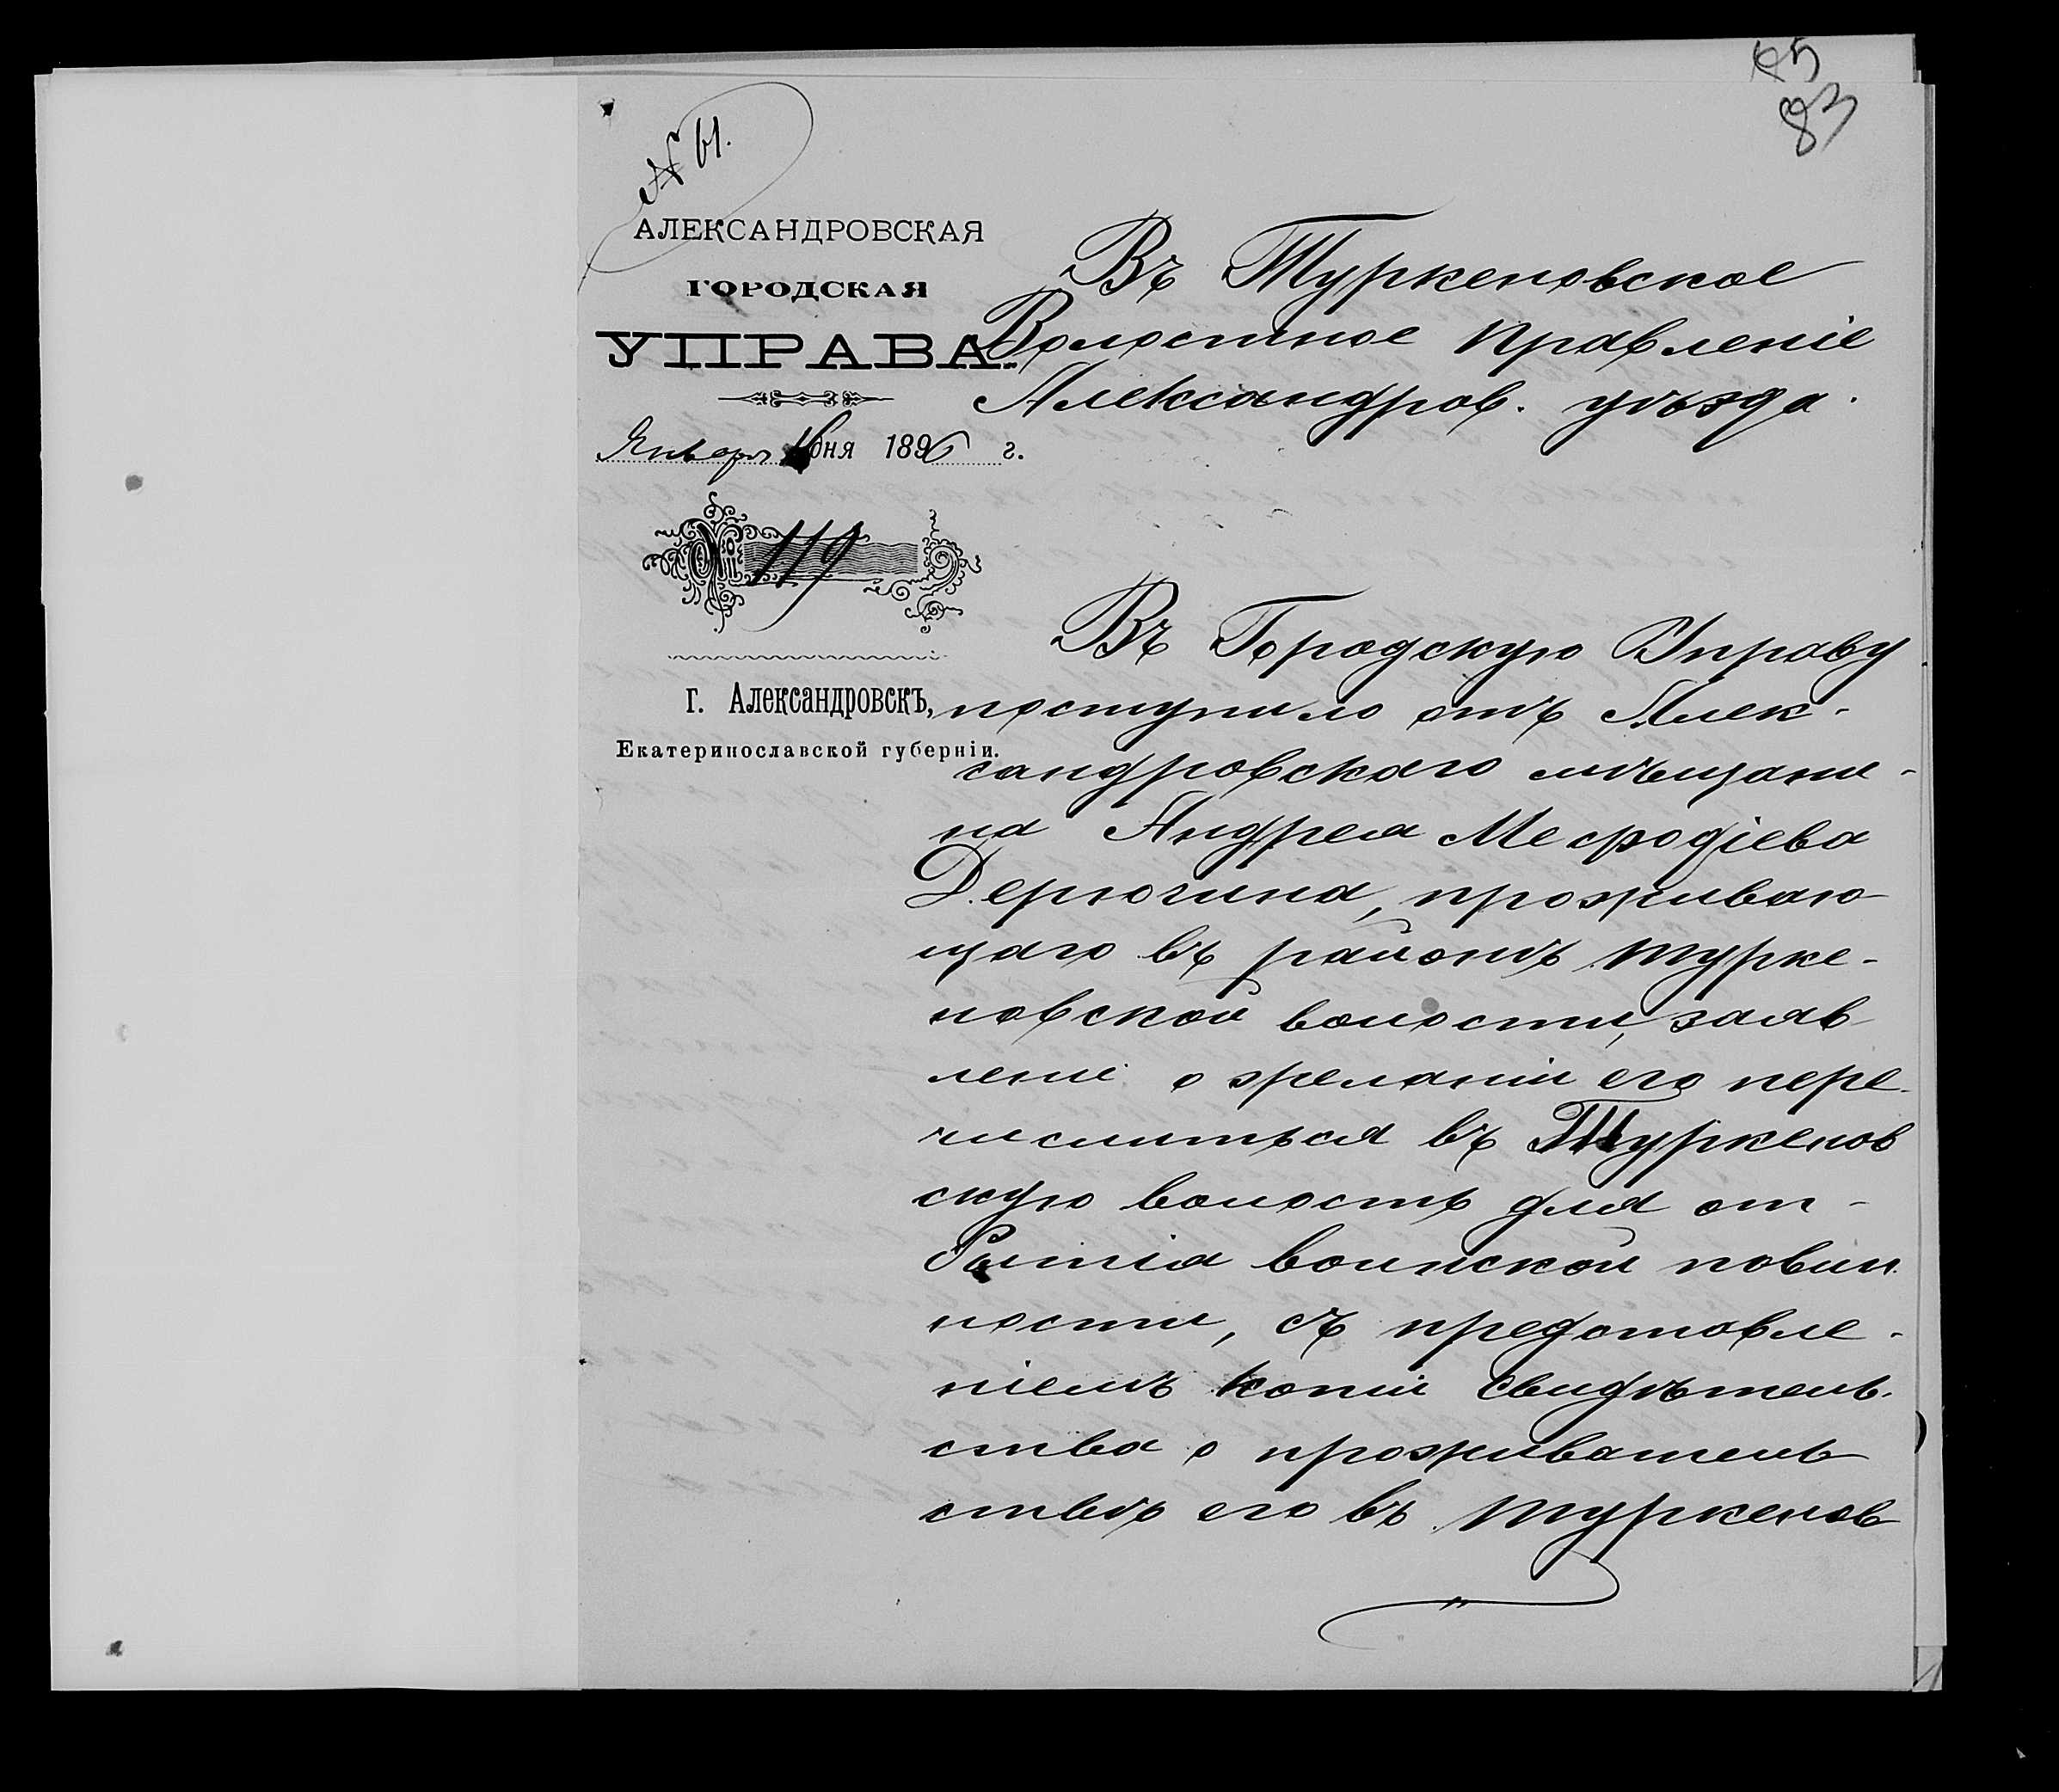 85
83
№ 61.
АЛЕКСАНДРОВСКАЯ
ГОРОДСКАЯ
УПРАВА.
Января дня 1896 г.
№ 119
г. Александровскъ,
Екатеринославской губерніи.
Въ Туркеновское
Волостное Правленіе
Александров. уѣзда.
Въ Городскую Управу
поступило отъ Алек-
сандровскаго мѣщани-
на Андрея Мефодіева
Дерюгина, проживаю-
щаго въ районѣ Турке-
новской волости, заяв
леніе о желаніи его пере-
числиться въ Туркенов
скую волость для от-
бытія воинской повин
ности, съ представле-
ніемъ копіи свидѣтель-
ства о проживатель
ствѣ его въ Туркенов